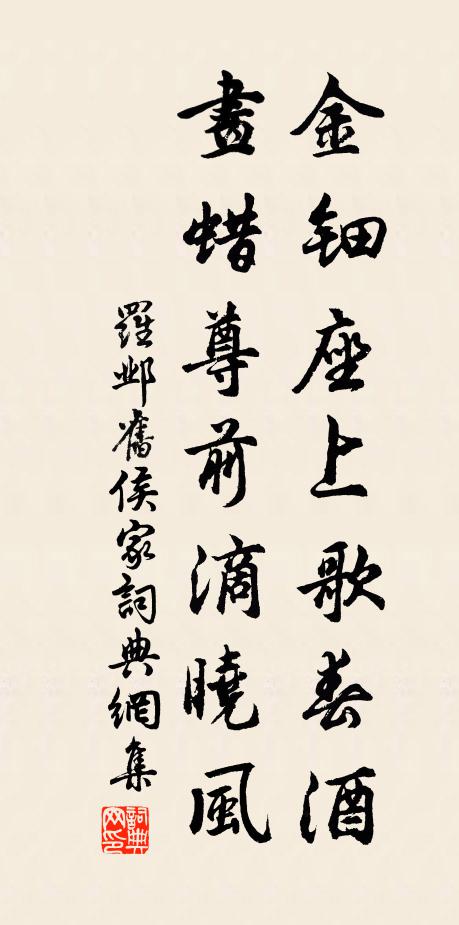 金鈿座上歌春酒
畫蜡尊前滴曉風
羅鄴舊侯家詞典網集
詞典
网印